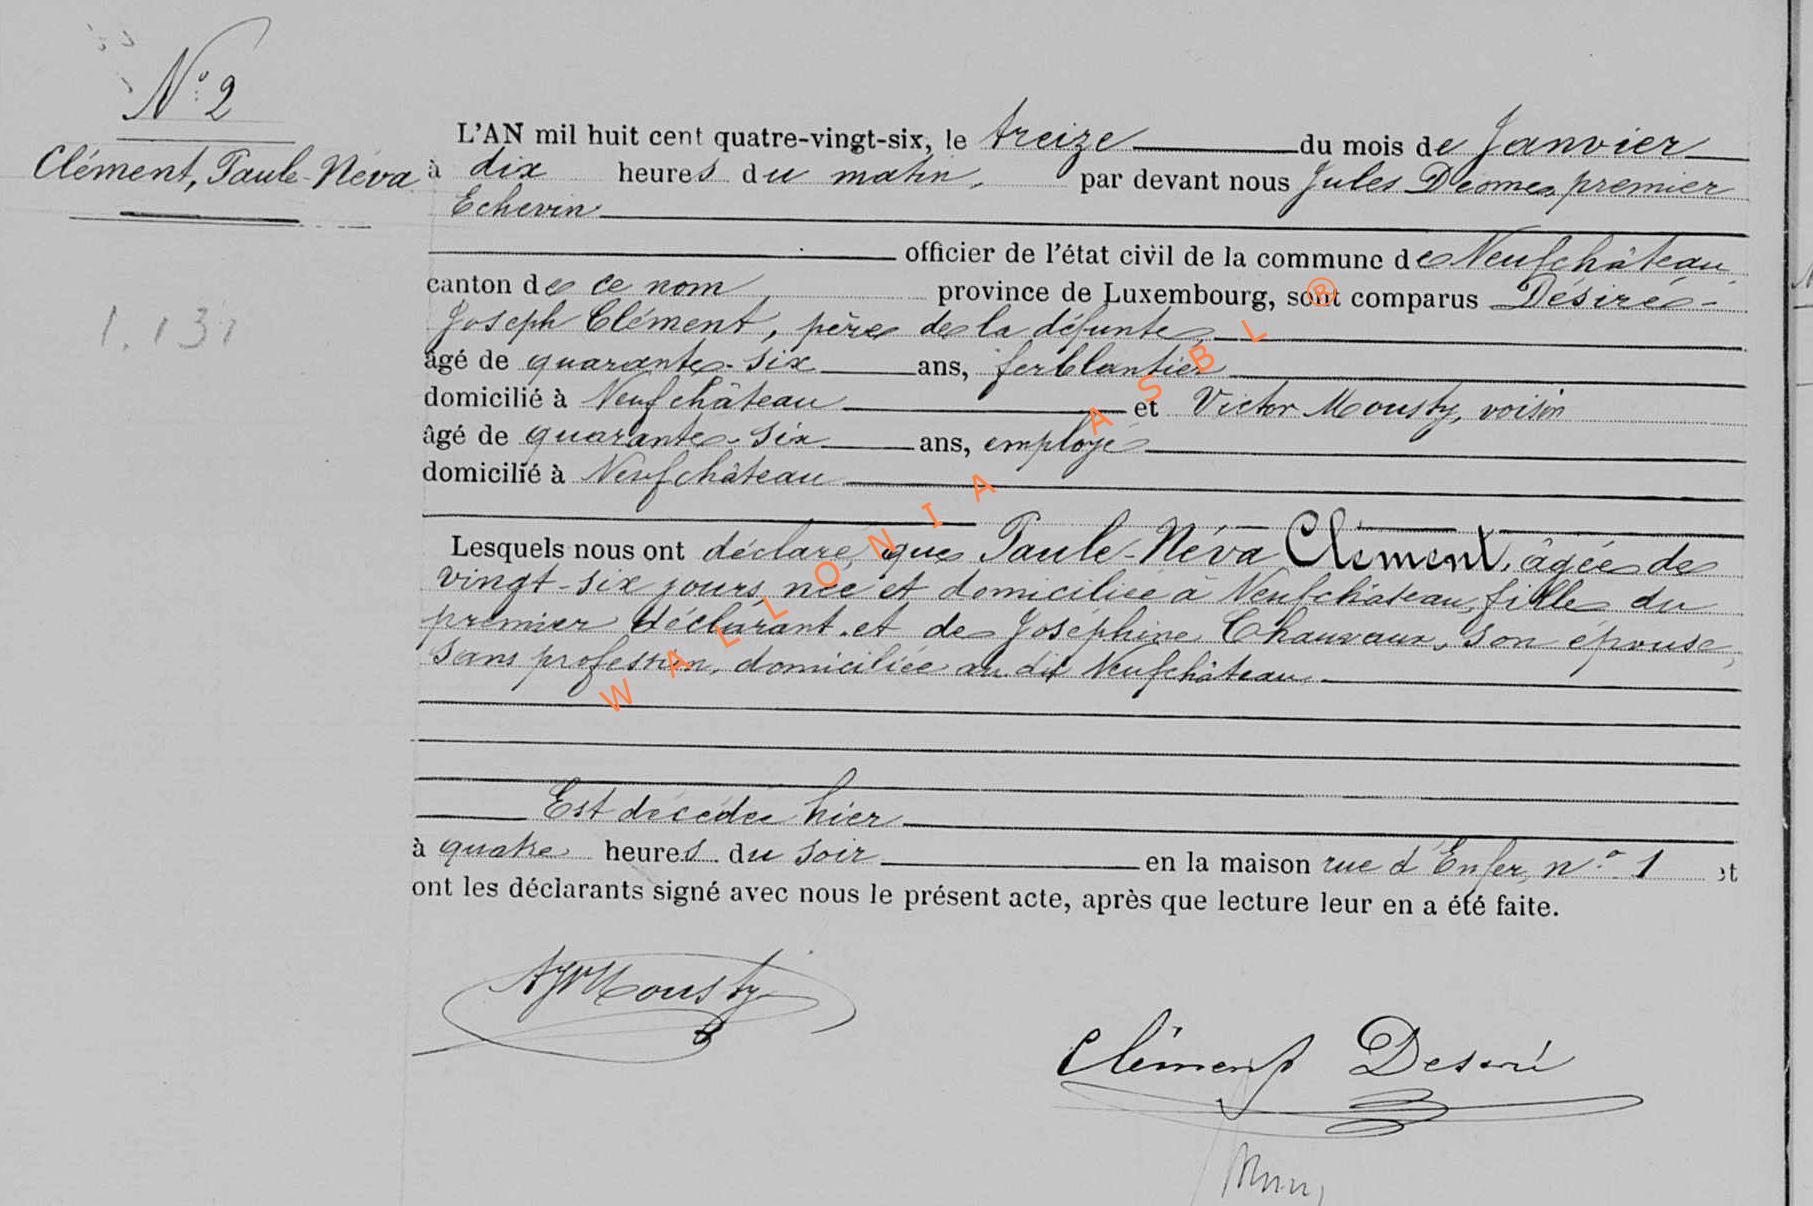 N° 2
Clément, Paule-Néva
1.131
L'AN mil huit cent quatre-vingt-six, le treize du mois de Janvier
à dix heures du matin, par devant nous Jules Deome, premier
Echevin
officier de l'état civil de la commune de Neufchâteau,
canton de ce nom, province de Luxembourg, sont comparus Désiré-
Joseph Clément, père de la défunte,
âgé de quarante-six ans, ferblantier
domicilié à Neufchâteau et Victor Mousty, voisin
âgé de quarante-six ans, employé
domicilié à Neufchâteau
Lesquels nous ont déclaré, que Paule-Néva Clément, âgée de
vingt-six jours, née et domiciliée à Neufchâteau, fille du
premier déclarant et de Joséphine Chauvaux, son épouse,
sans profession, domiciliée au dit Neufchâteau.
Est décédée hier
à quatre heures du soir en la maison rue d'Enfer, n° 1 et
ont les déclarants signé avec nous le présent acte, après que lecture leur en a été faite.
Mousty
Clément Desiré
WALLONIA ASBL ®